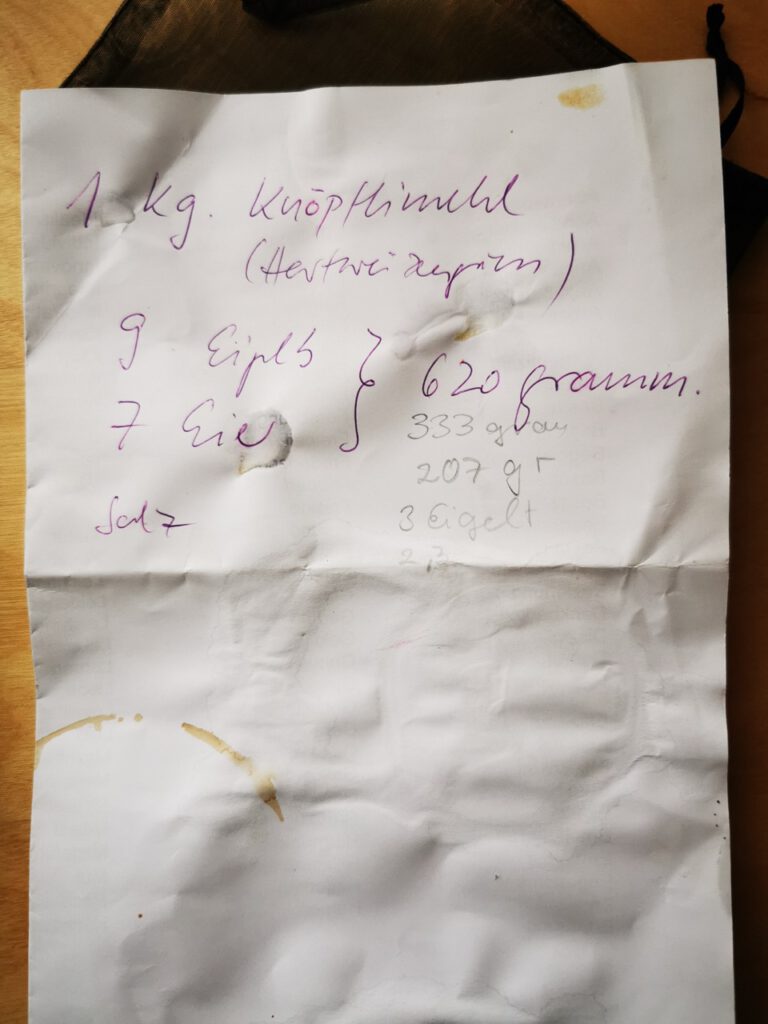 1 kg. Knöpflimehl
(Hartweizen)
9 Eigelb
7 Eier } 620 gramm.
333 gram
207 gr
Salz
3 Eigelt